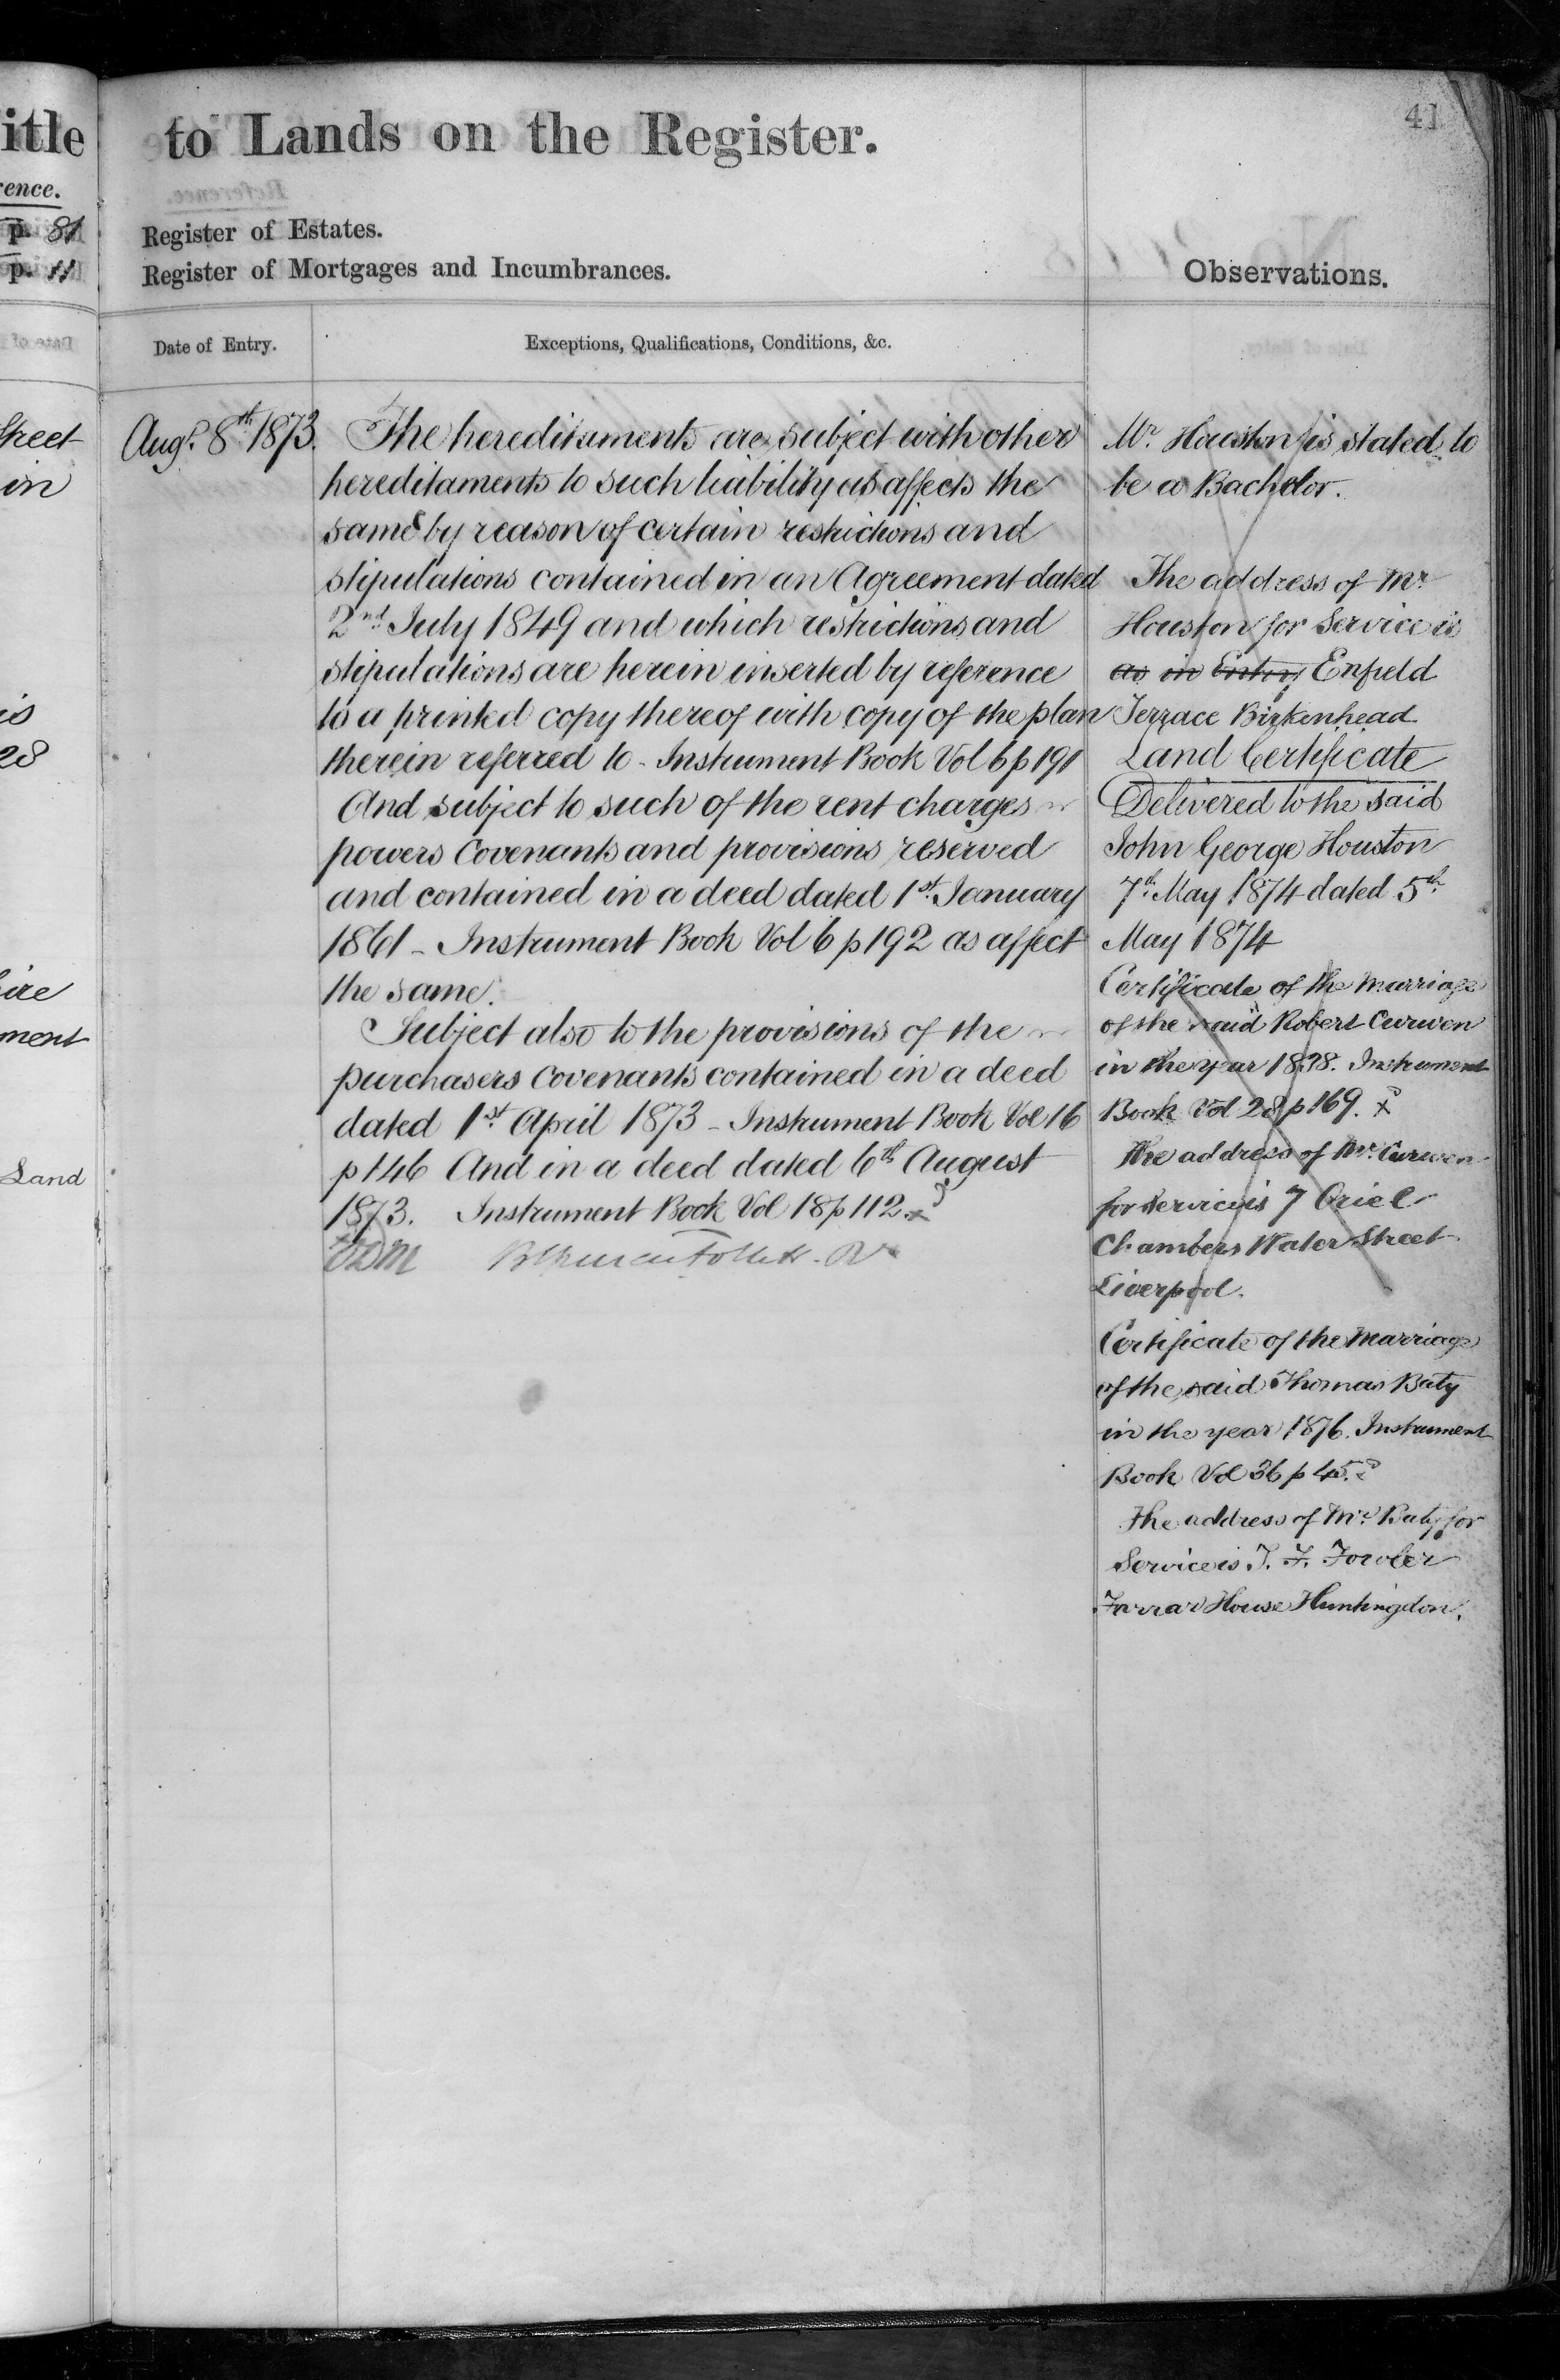 itle
rence.
p. 81
p. 11
Street
in
is
28
ire
ment
Land
to Lands on the Register.
41
Register of Estates.
Register of Mortgages and Incumbrances.
Observations.
Date of Entry.
Exceptions, Qualifications, Conditions, &c.
Augt. 8th 1873.
The hereditaments are subject with other
hereditaments to such liability as affects the
same by reason of certain restrictions and
stipulations contained in an Agreement dated
2nd July 1849 and which restrictions and
stipulations are herein inserted by reference
to a printed copy thereof with copy of the plan
therein referred to - Instrument Book Vol 6 p 191
And subject to such of the rent charges
powers Covenants and provisions reserved
and contained in a deed dated 1st January
1861 - Instrument Book Vol 6 p 192 as affect
the same.
Subject also to the provisions of the
purchasers Covenants contained in a deed
dated 1st April 1873 - Instrument Book Vol 16
p 146 And in a deed dated 6th August
1873. Instrument Book Vol 18 p 112 x
Mr. Houston is stated to
be a Bachelor.
The address of Mr
Houston for Service is
as in Entry Enfield
Terrace Birkenhead
Land Certificate
Delivered to the said
John George Houston
7th May 1874 dated 5th
May 1874
Certificate of the Marriage
of the said Robert Curwen
in the year 1838. Instrument
Book Vol 28 p 169. x
The address of Mr. Curwen
for Service is 7 Oriel
Chambers Water Street
Liverpool.
Certificate of the Marriage
of the said Thomas Baty
in the year 1876. Instrument
Book Vol 36 p 45.
The address of Mr. Baty for
Service is T. F. Fowler
Farrar House Huntingdon.